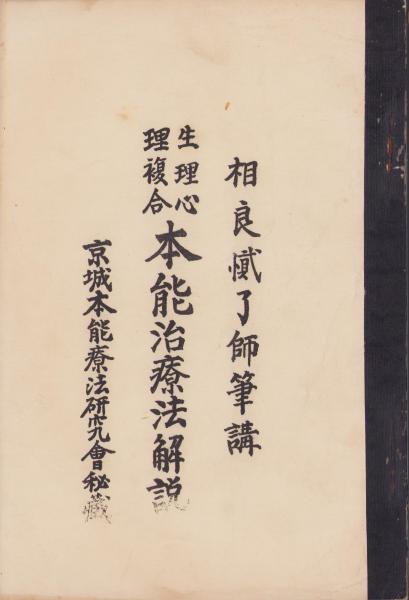 相良 了師筆講
生理心
理複合
本能治療法解説
京城本能療法研究會秘藏